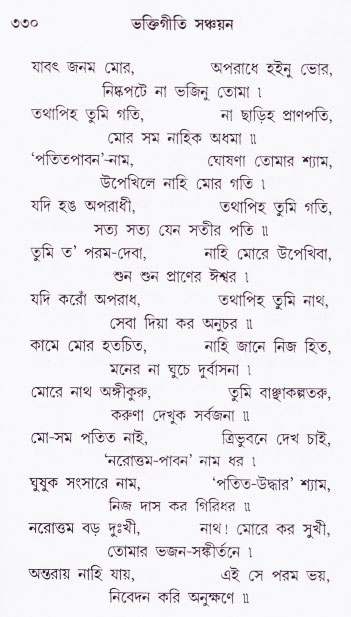 ৩৩০ ভক্তিগীতি সঞ্চয়ন
যাবৎ জনম মোর, অপরাধে হইনু ভোর,
নিষ্কপটে না ভজিনু তোমা ৷
তথাপিহ তুমি গতি, না ছাড়িহ প্রাণপতি,
মোর সম নাহিক অধমা ৷৷
‘পতিতপাবন’-নাম, ঘোষণা তোমার শ্যাম,
উপেখিলে নাহি মোর গতি ৷
যদি হঙ অপরাধী, তথাপিহ তুমি গতি,
সত্য সত্য যেন সতীর পতি ৷৷
তুমি ত’ পরম-দেবা, নাহি মোরে উপেখিবা,
শুন শুন প্রাণের ঈশ্বর ৷
যদি করোঁ অপরাধ, তথাপিহ তুমি নাথ,
সেবা দিয়া কর অনুচর ৷৷
কামে মোর হতচিত, নাহি জানে নিজ হিত,
মনের না ঘুচে দুর্বাসনা ৷
মোরে নাথ অঙ্গীকুরু, তুমি বাঞ্ছাকল্পতরু,
করুণা দেখুক সর্বজনা ৷৷
মো-সম পতিত নাই, ত্রিভুবনে দেখ চাই,
‘নরোত্তম-পাবন’ নাম ধর ৷
ঘুষুক সংসারে নাম, ‘পতিত-উদ্ধার’ শ্যাম,
নিজ দাস কর গিরিধর ৷৷
নরোত্তম বড় দুঃখী, নাথ! মোরে কর সুখী,
তোমার ভজন-সঙ্কীর্তনে ৷
অন্তরায় নাহি যায়, এই সে পরম ভয়,
নিবেদন করি অনুক্ষণে ৷৷